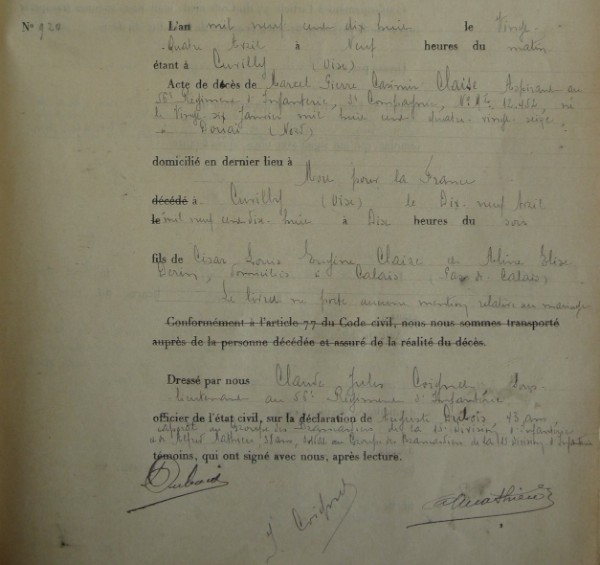 N° 920
L'an mil neuf cent dix huit le Vingt-
Quatre Avril à Neuf heures du matin
étant à Cuvilly (Oise)
Acte de décès de Marcel Pierre Casimir Claise Aspirant au
56e Régiment d'Infanterie, 3e Compagnie, N° Mle né
le Vingt six Janvier mil huit cent quatre vingt seize
à Douai (Nord)
domicilié en dernier lieu à
Mort pour la France
décédé à Cuvilly (Oise) le Dix-neuf Avril
le mil neuf cent dix-huit à Dix heures du soir
fils de César Louis Eugène Claise et Aline Elise
domiciliés à Calais (Pas de Calais)
Le livret ne porte aucune mention relative au mariage
Conformément à l'article 77 du Code civil, nous nous sommes transporté
auprès de la personne décédée et assuré de la réalité du décès.
Dressé par nous Claude Jules Coignet, Sous-
lieutenant au 56e Régiment d'Infanterie
officier de l'état civil, sur la déclaration de Auguste Dubois, 43 ans,
caporal au Groupe des Brancardiers de la 15e Division d'Infanterie
et de Alfred Mathieu, 31 ans, soldat au Groupe de Brancardiers de la 15e Division d'Infanterie
témoins, qui ont signé avec nous, après lecture.
Dubois
J. Coignet
Mathieu